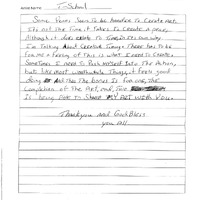 Artist Name: I-School
Some Years Seem To be Harder To Create Art.
It's not the Time it Takes To Create a piece,
Although it does relate To Time in its own way.
I'm Talking About Seasonal Timing. There has To be
for me a feeling of This is what I need To Create.
Sometimes I need To Push myself into The Action,
but like most worthwhile Things, it feels good
doing it. The bonus is for one, the
Completion of The Art, and, Two
is being Able to Share My ART with You.
Thankyou and God Bless
you All.